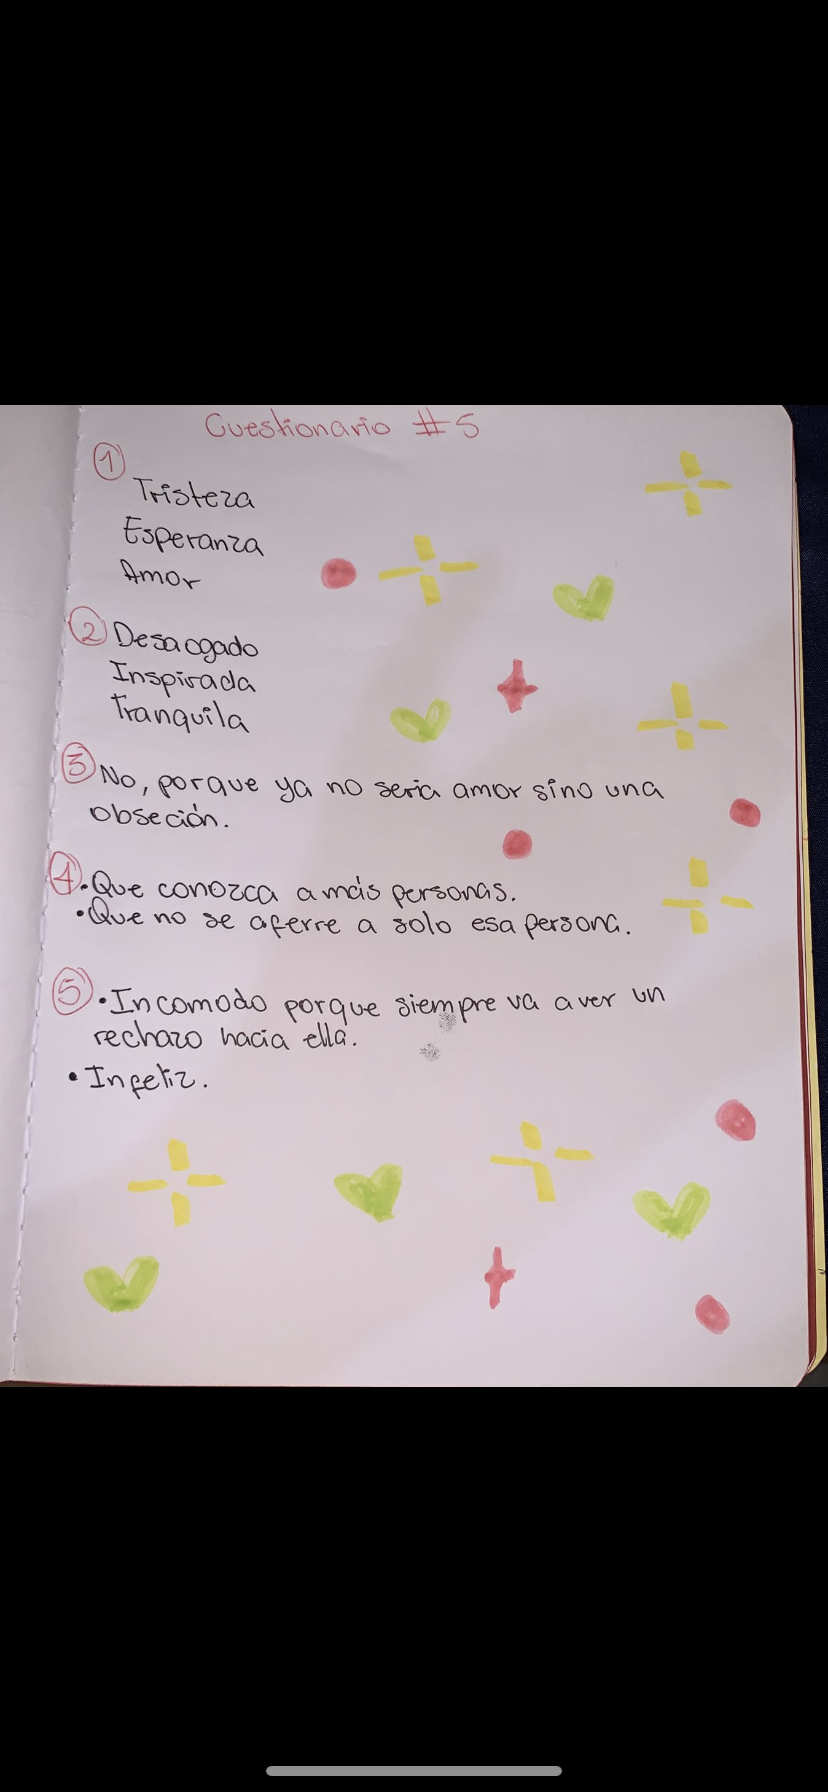 Cuestionario #5
1
Tristeza
Esperanza
Amor
2 Desaogado
Inspirada
Tranquila
3 No, porque ya no seria amor sino una
obseción.
4 •Que conozca a más personas.
•Que no se aferre a solo esa persona.
5 •Incomodo porque siempre va a ver un
rechazo hacia ella.
• Infeliz.